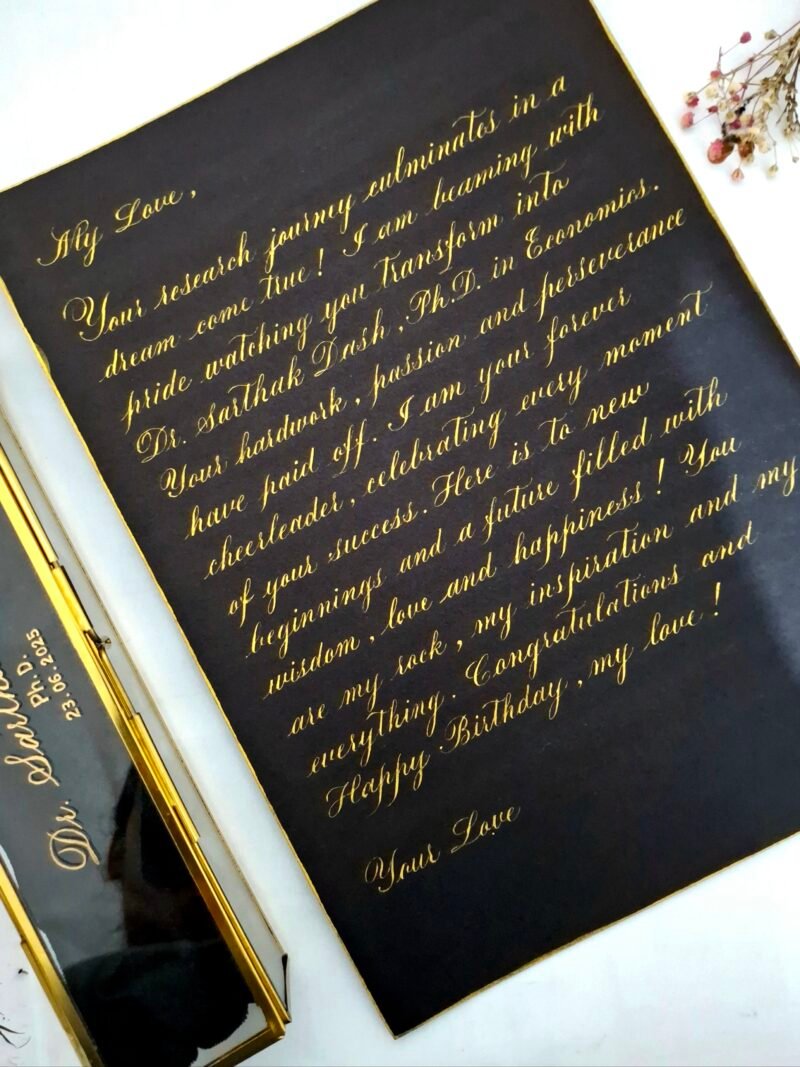 My Love,
Your research journey culminates in a
dream come true! I am beaming with
pride watching you transform into
Dr. Sarthak Dash, Ph.D. in Economics.
Your hardwork, passion and perseverance
have paid off. I am your forever
cheerleader, celebrating every moment
of your success. Here is to new
beginnings and a future filled with
wisdom, love and happiness! You
are my rock, my inspiration and my
everything. Congratulations and
Happy Birthday, my love!
Your Love
Dr.
Ph. D.
23.06.2025